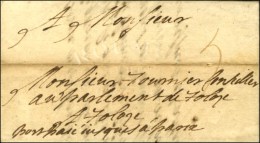 A Monsieur
Monsieur Fournier Conseiller
au parlement de Toloze
A Toloze
port paié jusques a paris